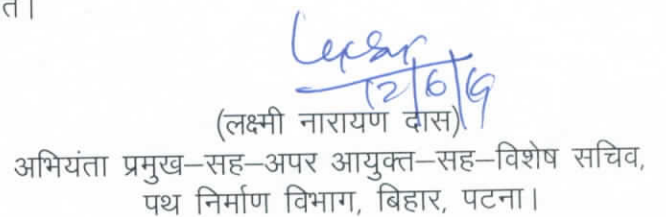 त।
12/6/19
(लक्ष्मी नारायण दास)
अभियंता प्रमुख–सह–अपर आयुक्त–सह–विशेष सचिव,
पथ निर्माण विभाग, बिहार, पटना।